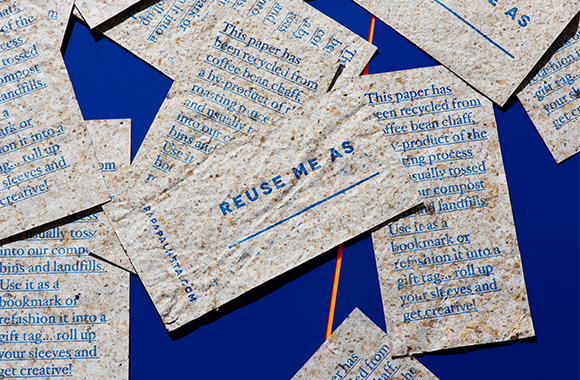 of the
tossed
compost
landfills.
a
mark or
ion it into a
roll up
sleeves and
creative!
This paper has
been recycled from
coffee bean chaff,
a by-product of
roasting
and usually
into our
bins
Use it
ME AS
REUSE ME AS
PAPAPALHETA.COM
This paper has
been recycled from
coffee bean chaff,
by-product of the
process
usually tossed
our compost
and landfills.
Use it as a
bookmark or
refashion it into a
gift tag... roll up
your sleeves and
get creative!
.com
usually
into our
bins and landfills.
Use it as a
bookmark or
refashion it into a
gift tag... roll up
your sleeves and
get creative!
gift tag
your
get
paper has
from